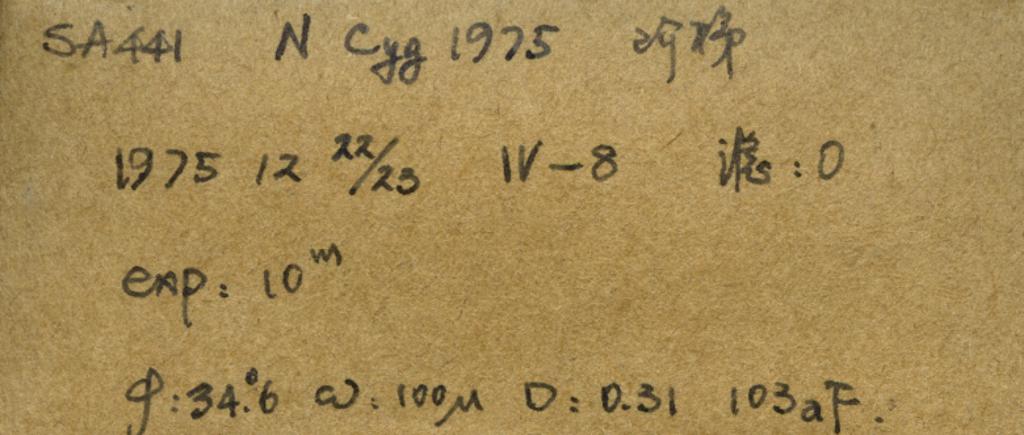 SA441 N Cyg 1975
1975 12 22/23 IV-8 滤: 0
exp: 10ᵐ
φ: 34.°6 ω: 100μ D: 0.31 103aF.